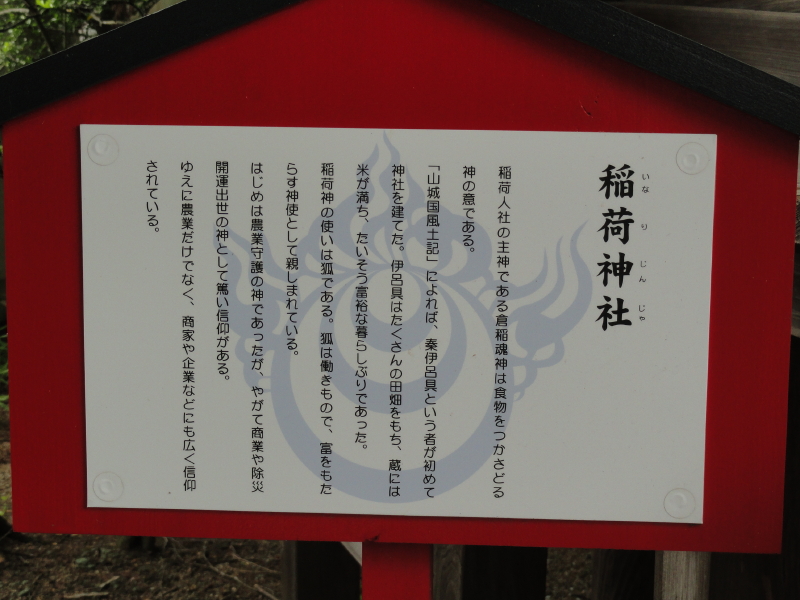 稲荷神社
いなりじんじゃ
稲荷人社の主神である倉稲魂神は食物をつかさどる
神の意である。
「山城国風土記」によれば、秦伊呂具という者が初めて
神社を建てた。伊呂具はたくさんの田畑をもち、蔵には
米が満ち、たいそう富裕な暮らしぶりであった。
稲荷神の使いは狐である。狐は働きもので、富をもた
らす神使として親しまれている。
はじめは農業守護の神であったが、やがて商業や除災
開運出世の神として篤い信仰がある。
ゆえに農業だけでなく、商家や企業などにも広く信仰
されている。